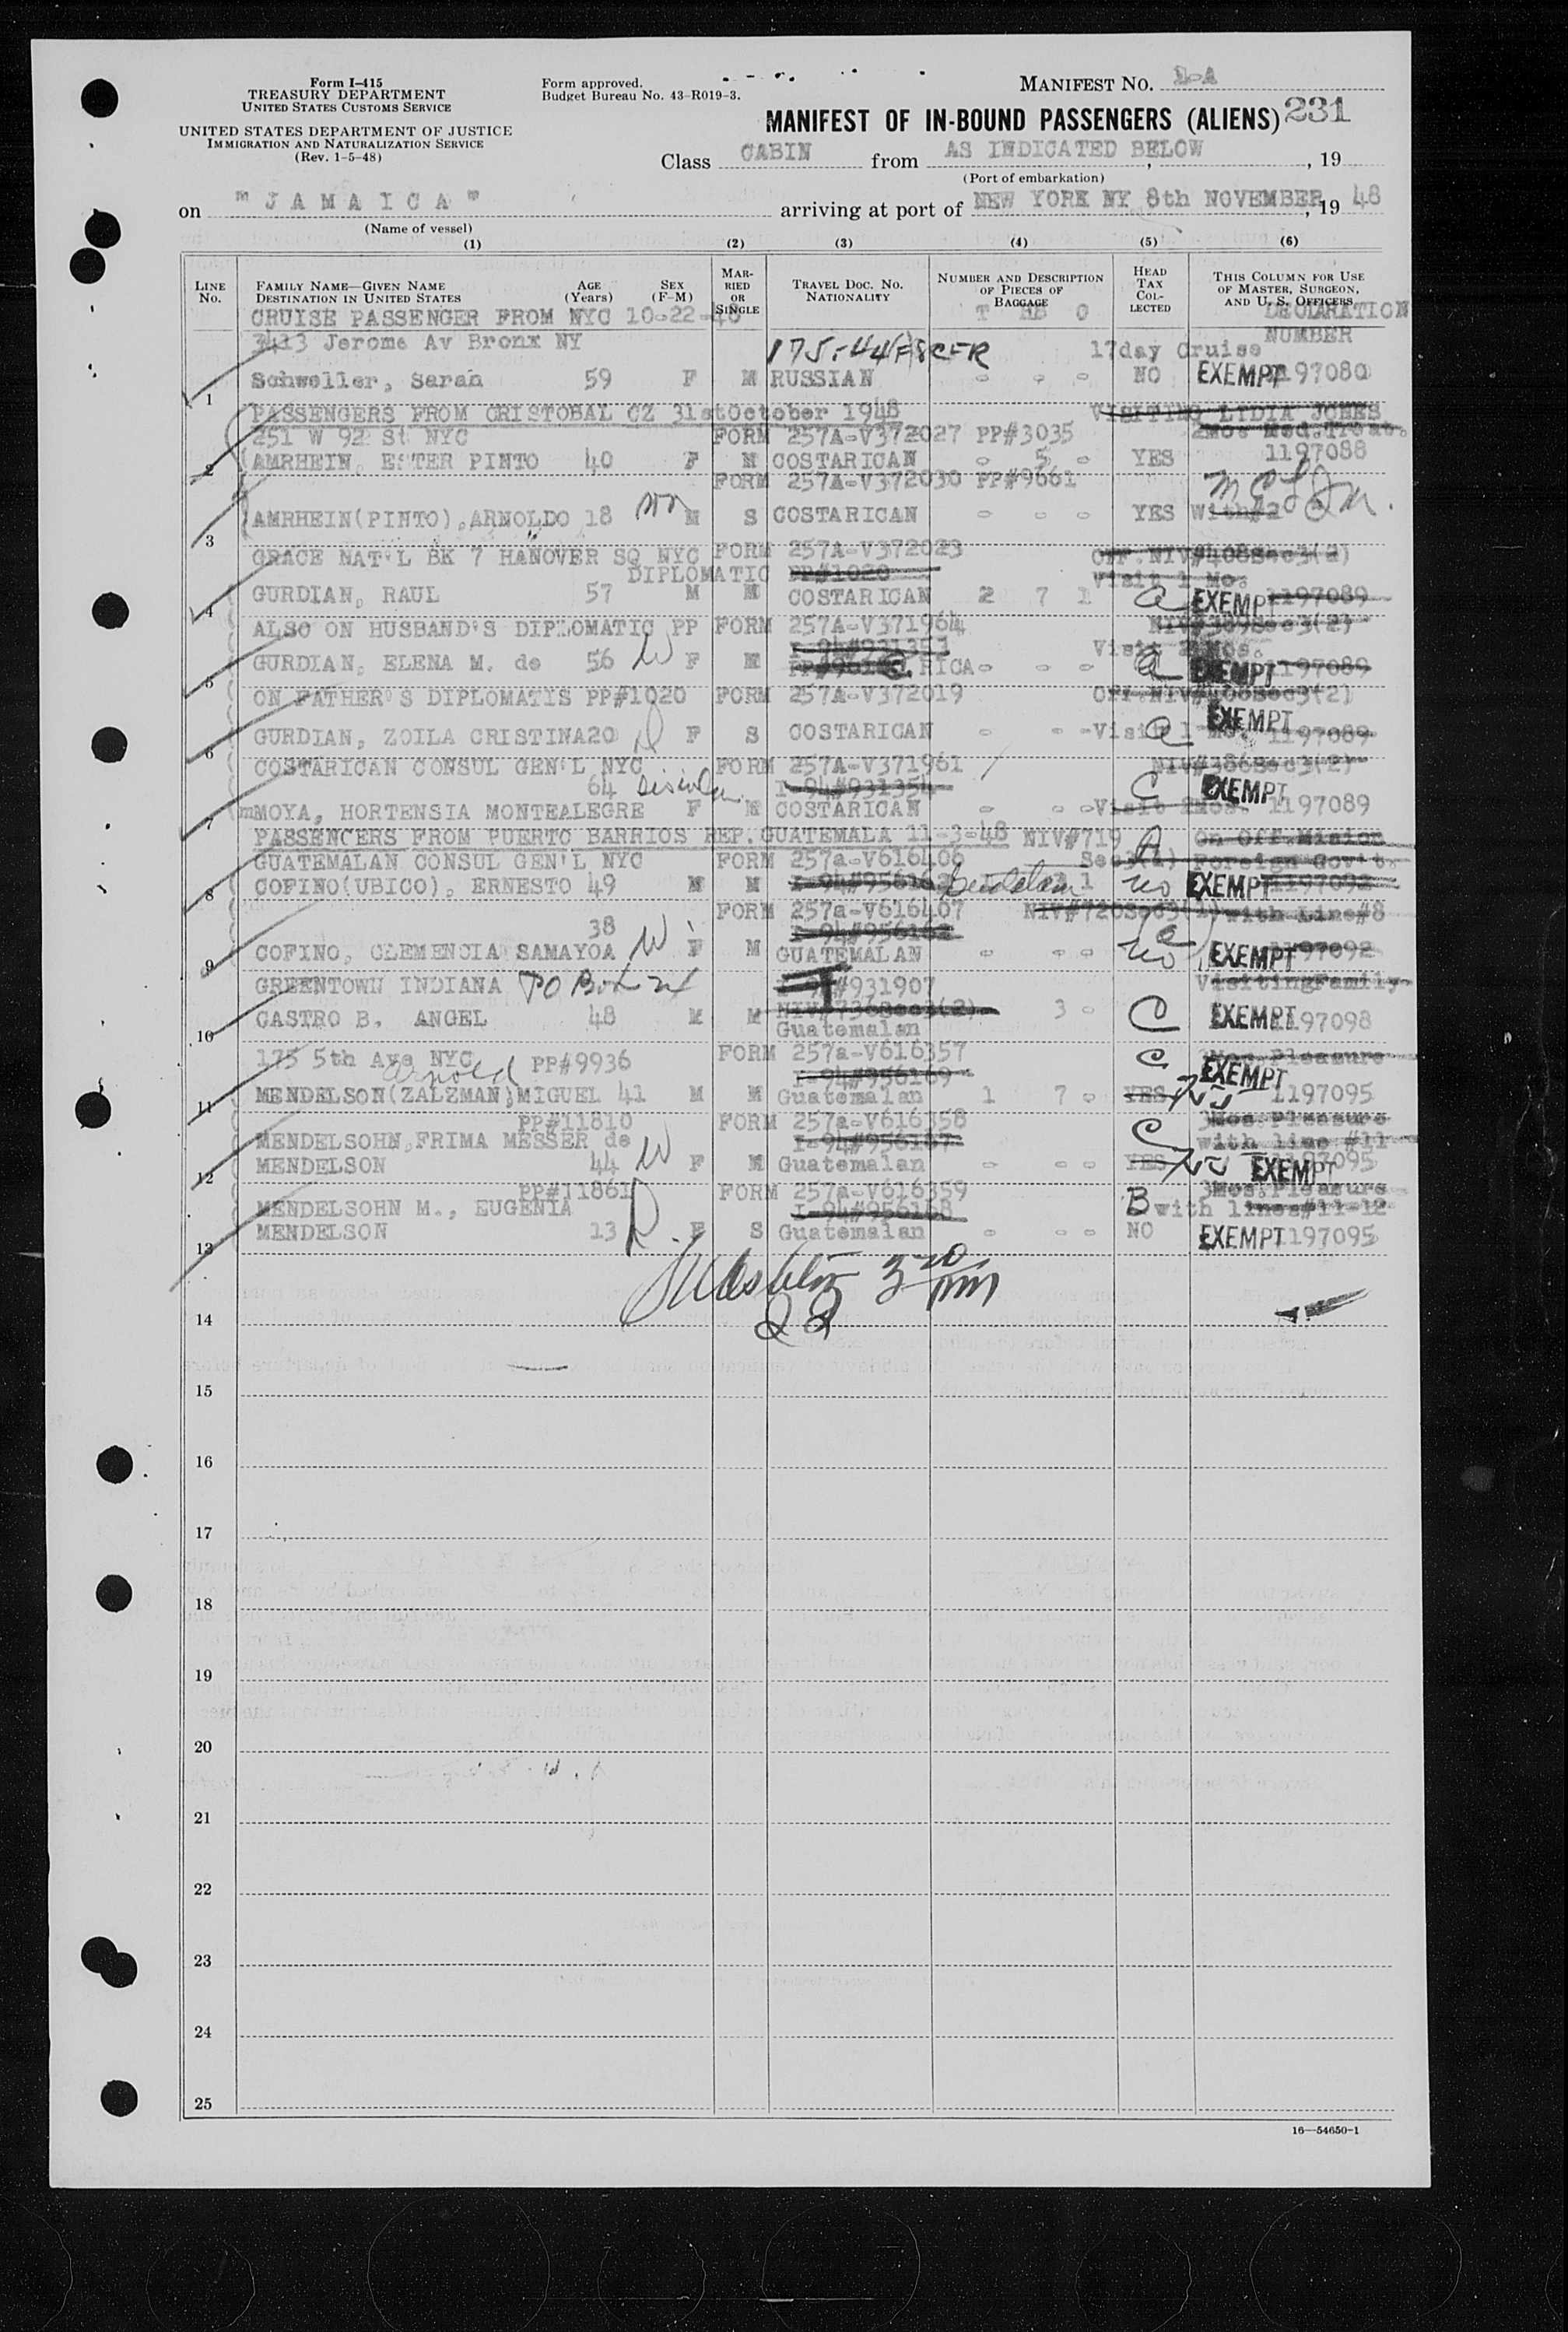 Form I-415
TREASURY DEPARTMENT
UNITED STATES CUSTOMS SERVICE
UNITED STATES DEPARTMENT OF JUSTICE
IMMIGRATION AND NATURALIZATION SERVICE
(Rev. 1-5-48)
Form approved.
Budget Bureau No. 43-R019-3.
MANIFEST NO. 1-A
MANIFEST OF IN-BOUND PASSENGERS (ALIENS) 231
Class CABIN from AS INDICATED BELOW, 19
(Port of embarkation)
on "JAMAICA" arriving at port of NEW YORK NY 8th NOVEMBER, 19 48
(Name of vessel)
(1) (2) (3) (4) (5) (6)
LINE NO.
FAMILY NAME—GIVEN NAME
DESTINATION IN UNITED STATES
AGE (Years)
SEX (F-M)
MARRIED OR SINGLE
TRAVEL DOC. NO.
NATIONALITY
NUMBER AND DESCRIPTION OF PIECES OF BAGGAGE
HEAD TAX COLLECTED
THIS COLUMN FOR USE OF MASTER, SURGEON, AND U. S. OFFICERS
CRUISE PASSENGER FROM NYC 10-22-48 T HB O DECLARATION
3413 Jerome Av Bronx NY 17day Cruise NUMBER
1 Schweller, Sarah 59 F M RUSSIAN - - - NO EXEMPT 1197080
PASSENGERS FROM CRISTOBAL CZ 31stOctober 1948 VISITING LYDIA JONES
251 W 92 St NYC FORM 257A-V372027 PP#3035 2Mos Med.Treat.
2 AMRHEIN, ESTER PINTO 40 F M COSTARICAN - 5 - YES 1197088
FORM 257A-V372030 PP#9661
3 AMRHEIN(PINTO),ARNOLDO 18 son M S COSTARICAN - - - YES With#2
GRACE NAT'L BK 7 HANOVER SQ NYC FORM 257A-V372023 Off.NIV#408Sec3(2)
DIPLOMATIC PP#1020 Visit 1 Mo.
4 GURDIAN, RAUL 57 M M COSTARICAN 2 7 1 a EXEMPT 1197089
ALSO ON HUSBAND'S DIPLOMATIC PP FORM 257A-V371964 NIV#389Sec3(2)
I-94#931353 Visit 2 Mos.
5 GURDIAN, ELENA M. de 56 W F M RICA - - - a EXEMPT 1197089
ON FATHER'S DIPLOMATIS PP#1020 FORM 257A-V372019 Off.NIV#406Sec3(2)
6 GURDIAN, ZOILA CRISTINA20 d F S COSTARICAN - - - Visit 1 Mo. a EXEMPT 1197089
COSTARICAN CONSUL GEN'L NYC FORM 257A-V371961 NIV#386Sec3(2)
64 I-94#931354 C EXEMPT
7 mMOYA, HORTENSIA MONTEALEGRE F M COSTARICAN - - - Visit 2Mos. 1197089
PASSENGERS FROM PUERTO BARRIOS REP.GUATEMALA 11-3-48 NIV#719 A On Off.Mision
GUATEMALAN CONSUL GEN'L NYC FORM 257a-V616406 Sec3(1) Foreign Gov't.
8 COFINO(UBICO), ERNESTO 49 M M 3 1 no EXEMPT 1197092
FORM 257a-V616407 NIV#720Sec3(1) with Line#8
38 I-94#956162 (a)
9 COFINO, CLEMENCIA SAMAYOA W F M GUATEMALAN - - - no EXEMPT 1197092
GREENTOWN INDIANA PO Box 24 I-94#931907 VisitingFamily
NIV#736Sec3(2)
10 CASTRO B. ANGEL 48 M M Guatemalan 3 - C EXEMPT 1197098
175 5th Ave NYC PP#9936 FORM 257a-V616357 C 3Mos.Pleasure
Arnold I-94#956169 EXEMPT
11 MENDELSON(ZALZMAN),MIGUEL 41 M M Guatemalan 1 7 - YES no 1197095
PP#11810 FORM 257a-V616358 C 3Mos.Pleasure
MENDELSOHN,FRIMA MESSER de I-94#956167 with line #11
12 MENDELSON 44 W F M Guatemalan - - - YES no EXEMPT 1197095
PP#11861 FORM 257a-V616359 3Mos.Pleasure
MENDELSOHN M., EUGENIA I-94#956168 B with lines#11-12
13 MENDELSON 13 D F S Guatemalan - - - NO EXEMPT 1197095
14
15
16
17
18
19
20
21
22
23
24
25
16—54650-1